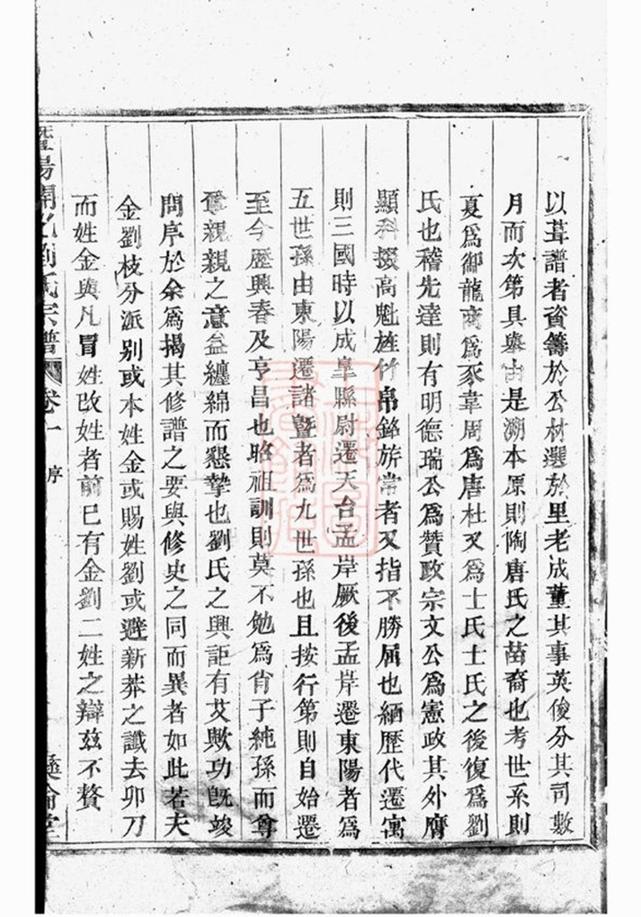 以葺譜者資籌於公材選於里老成董其事英俊分其司數
月而次第具舉由是溯本原則陶唐氏之苗裔也考世系則
夏爲御龍商爲豕韋周爲唐杜又爲士氏士氏之後復爲劉
氏也稽先達則有明德瑞公爲贊政宗文公爲憲政其外膺
顯科掇高魁旌竹帛銘旂常者又指不勝屈也緬歷代遷寓
則三國時以成皐縣尉遷天台孟岸厥後孟岸遷東陽者爲
五世孫由東陽遷諸曁者爲九世孫也且按行第則自始遷
至今歷興春及亨昌也昭祖訓則莫不勉爲肖子純孫而尊
尊親親之意益纏綿而懇摯也劉氏之興詎有艾歟功旣竣
問序於余爲揭其修譜之要與修史之同而異者如此若夫
金劉枝分派别或本姓金或賜姓劉或避新莽之讖去卯刀
而姓金與凡冒姓改姓者前已有金劉二姓之辯茲不贅
曁陽開化劉氏宗譜 卷一 序 彝倫堂